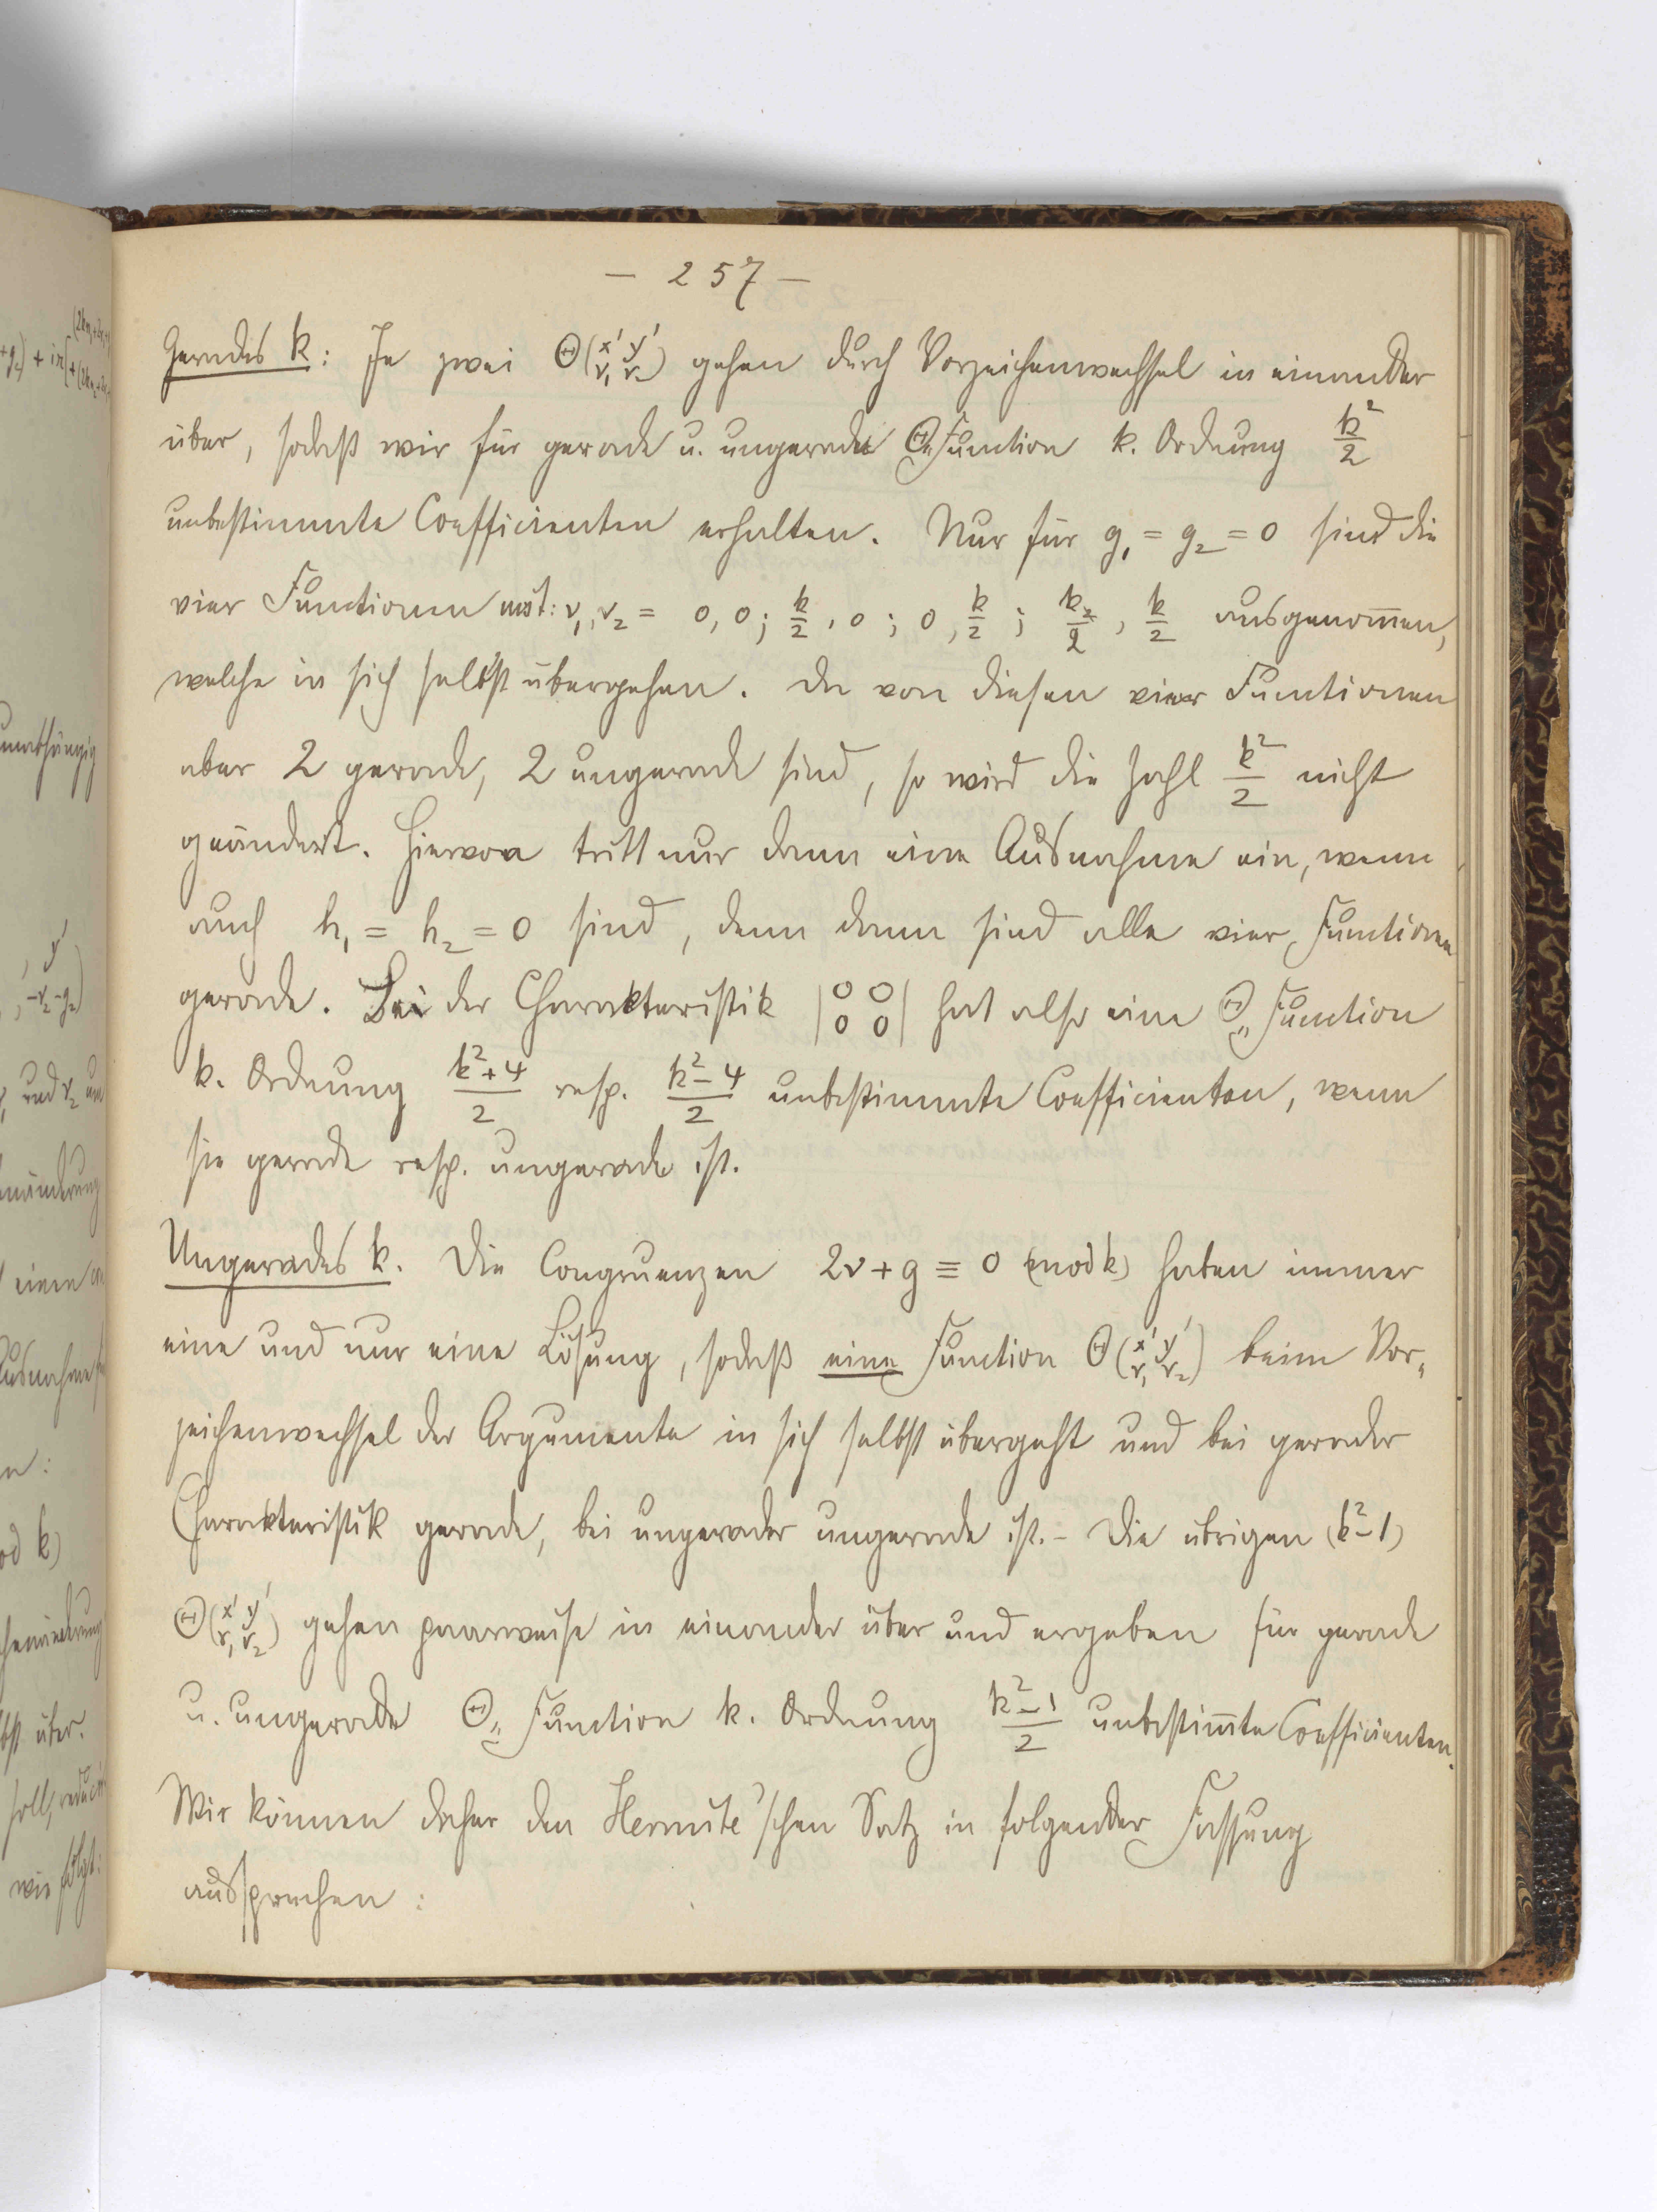 – 257 –
Gerades k: Je zwei Θ(x' y' ν₁ ν₂) gehen durch Vorzeichenwechsel in einander
über, sodaß wir für gerade u. ungerade Θ„Function k. Ordnung k²/2
unbestimmte Coefficienten erhalten. Nur für g₁ = g₂ = 0 sind die
vier Functionen mit: ν₁, ν₂ = 0, 0; k/2, 0; 0, k/2; k/2, k/2 ausgenom̅en,
welche in sich selbst übergehen. Da von diesen vier Functionen
aber 2 gerade, 2 ungerade sind, so wird die Zahl k²/2 nicht
geändert. Hiervon tritt nur dann eine Ausnahme ein, wenn
auch h₁ = h₂ = 0 sind, denn dann sind alle vier Functionen
gerade. Bei der Charakteristik |0 0 0 0| hat also eine Θ„Function
k. Ordnung (k²+4)/2 resp. (k²–4)/2 unbestimmte Coefficienten, wenn
sie gerade resp. ungerade ist.
Ungerades k. Die Congruenzen 2ν + g ≡ 0 (mod k) haben immer
eine und nur eine Lösung, sodaß eine Function Θ(x' y' ν₁ ν₂) beim Vor„
zeichenwechsel der Argumente in sich selbst übergeht und bei gerader
Charakteristik gerade, bei ungerader ungerade ist. – Die übrigen (k²–1)
Θ(x' y' ν₁ ν₂) gehen paarweise in einander über und ergeben für gerade
u. ungerade Θ„Function k. Ordnung (k²–1)/2 unbestim̅te Coefficienten.
Wir können daher den Hermite'schen Satz in folgender Fassung
aussprechen: